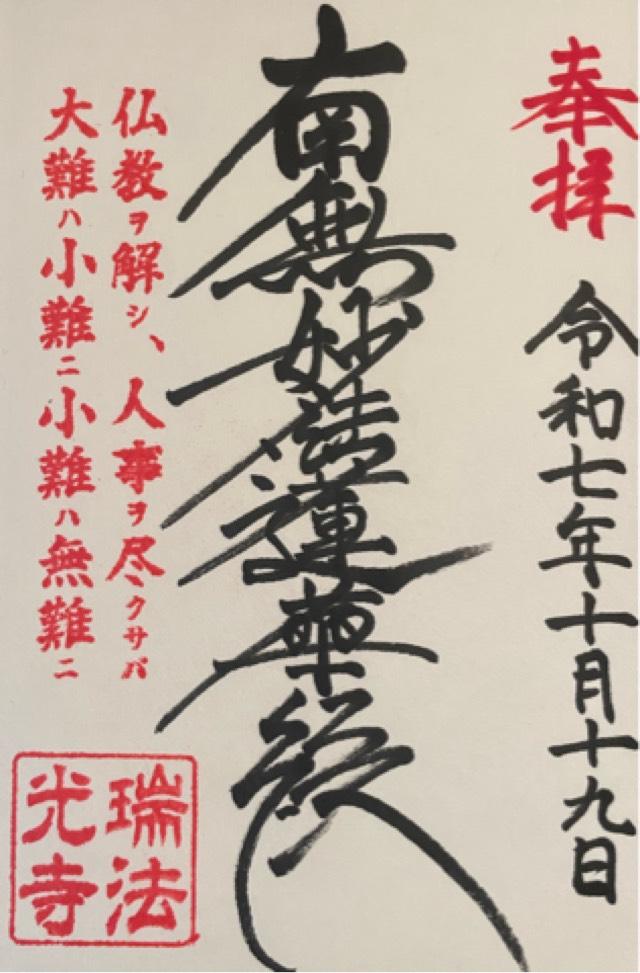 奉拝
令和七年十月十九日
南無妙法蓮華経
仏教ヲ解シ、人事ヲ尽クサバ
大難ハ小難ニ小難ハ無難ニ
瑞法
光寺